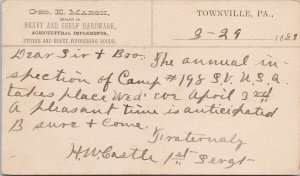 GEO. E. MARSH,
DEALER IN
HEAVY AND SHELF HARDWARE,
AGRICULTURAL IMPLEMENTS,
STOVES AND HOUSE FURNISHING GOODS.
TOWNVILLE, PA.,
3-29 1889
Dear Sir & Bro. The annual in-
spection of Camp #198 S.V. U.S.A.
takes place Wed. eve April 3rd
A pleasant time is anticipated
B sure & come.
Fraternaly
H.W. Castle 1st Sergt